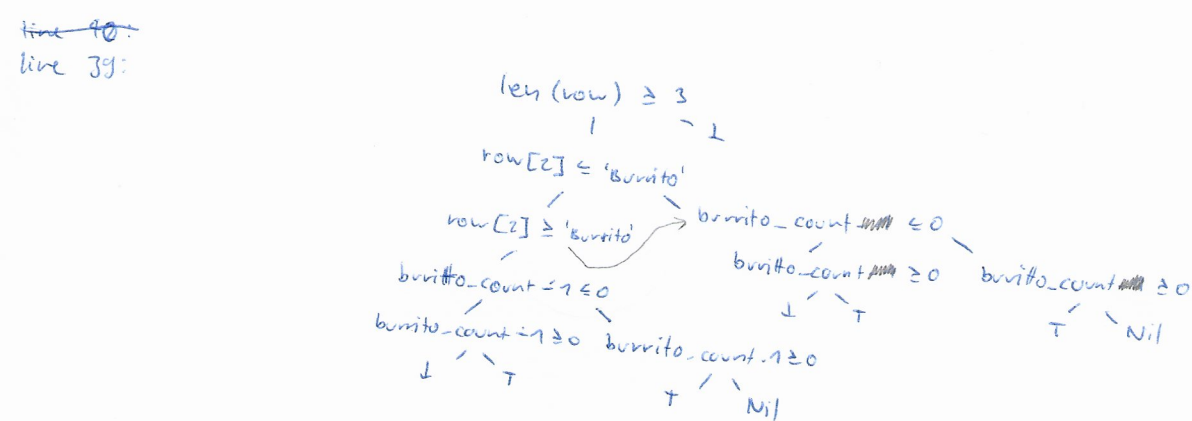 line 40:
line 39:
len (row) ≥ 3
⊥
row [2] ≤ 'Burrito'
row [2] ≥ 'Burrito'
burrito_count ≤ 0
buritto_count -1 ≤ 0
buritto_count ≥ 0
buritto_count ≥ 0
⊥ T
T Nil
burrito_count -1 ≥ 0
burrito_count -1 ≥ 0
⊥ T
T Nil